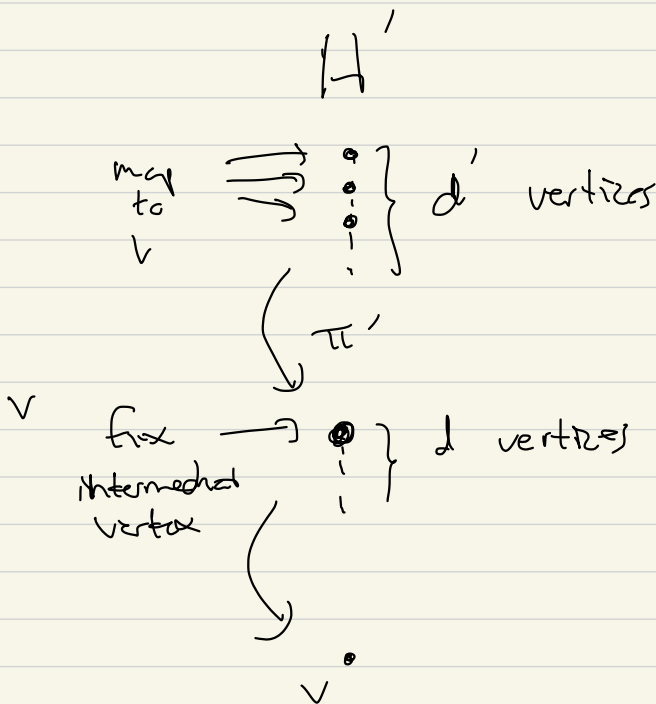 H'
map
to
v
d' vertizes
π'
v
fix
intermediat
vertex
d vertizes
v